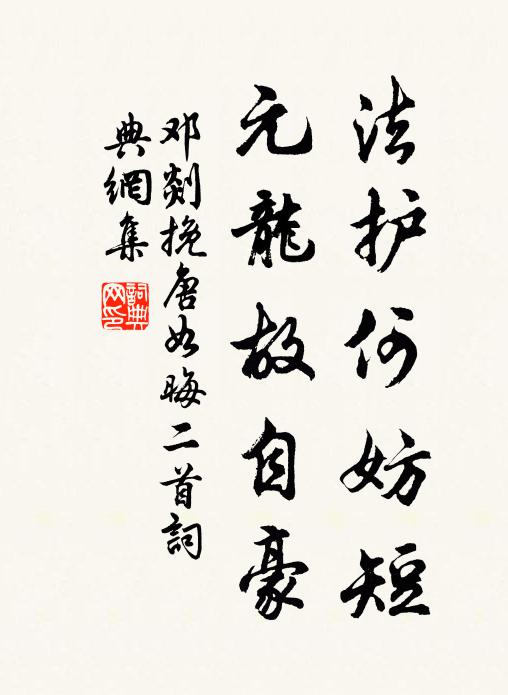 法护何妨短
元龍故自豪
邓剡挽唐如晦二首詞
典網集
詞典
网印